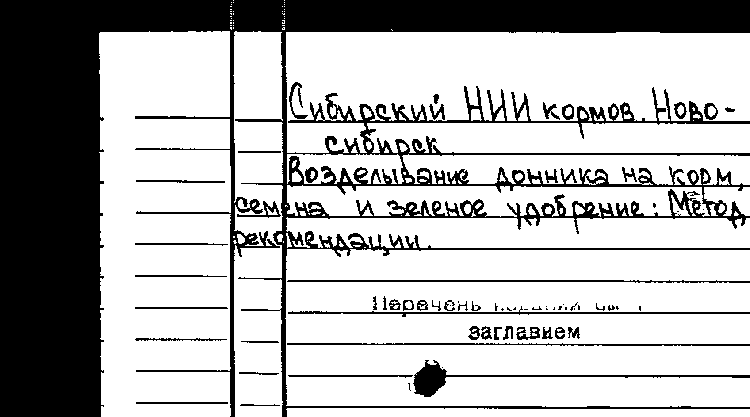 Сибирский НИИ кормов. Ново-
сибирск
Возделывание донника на корм,
семена и зеленое удобрение: Метод
рекомендации.
Перечень
заглавием